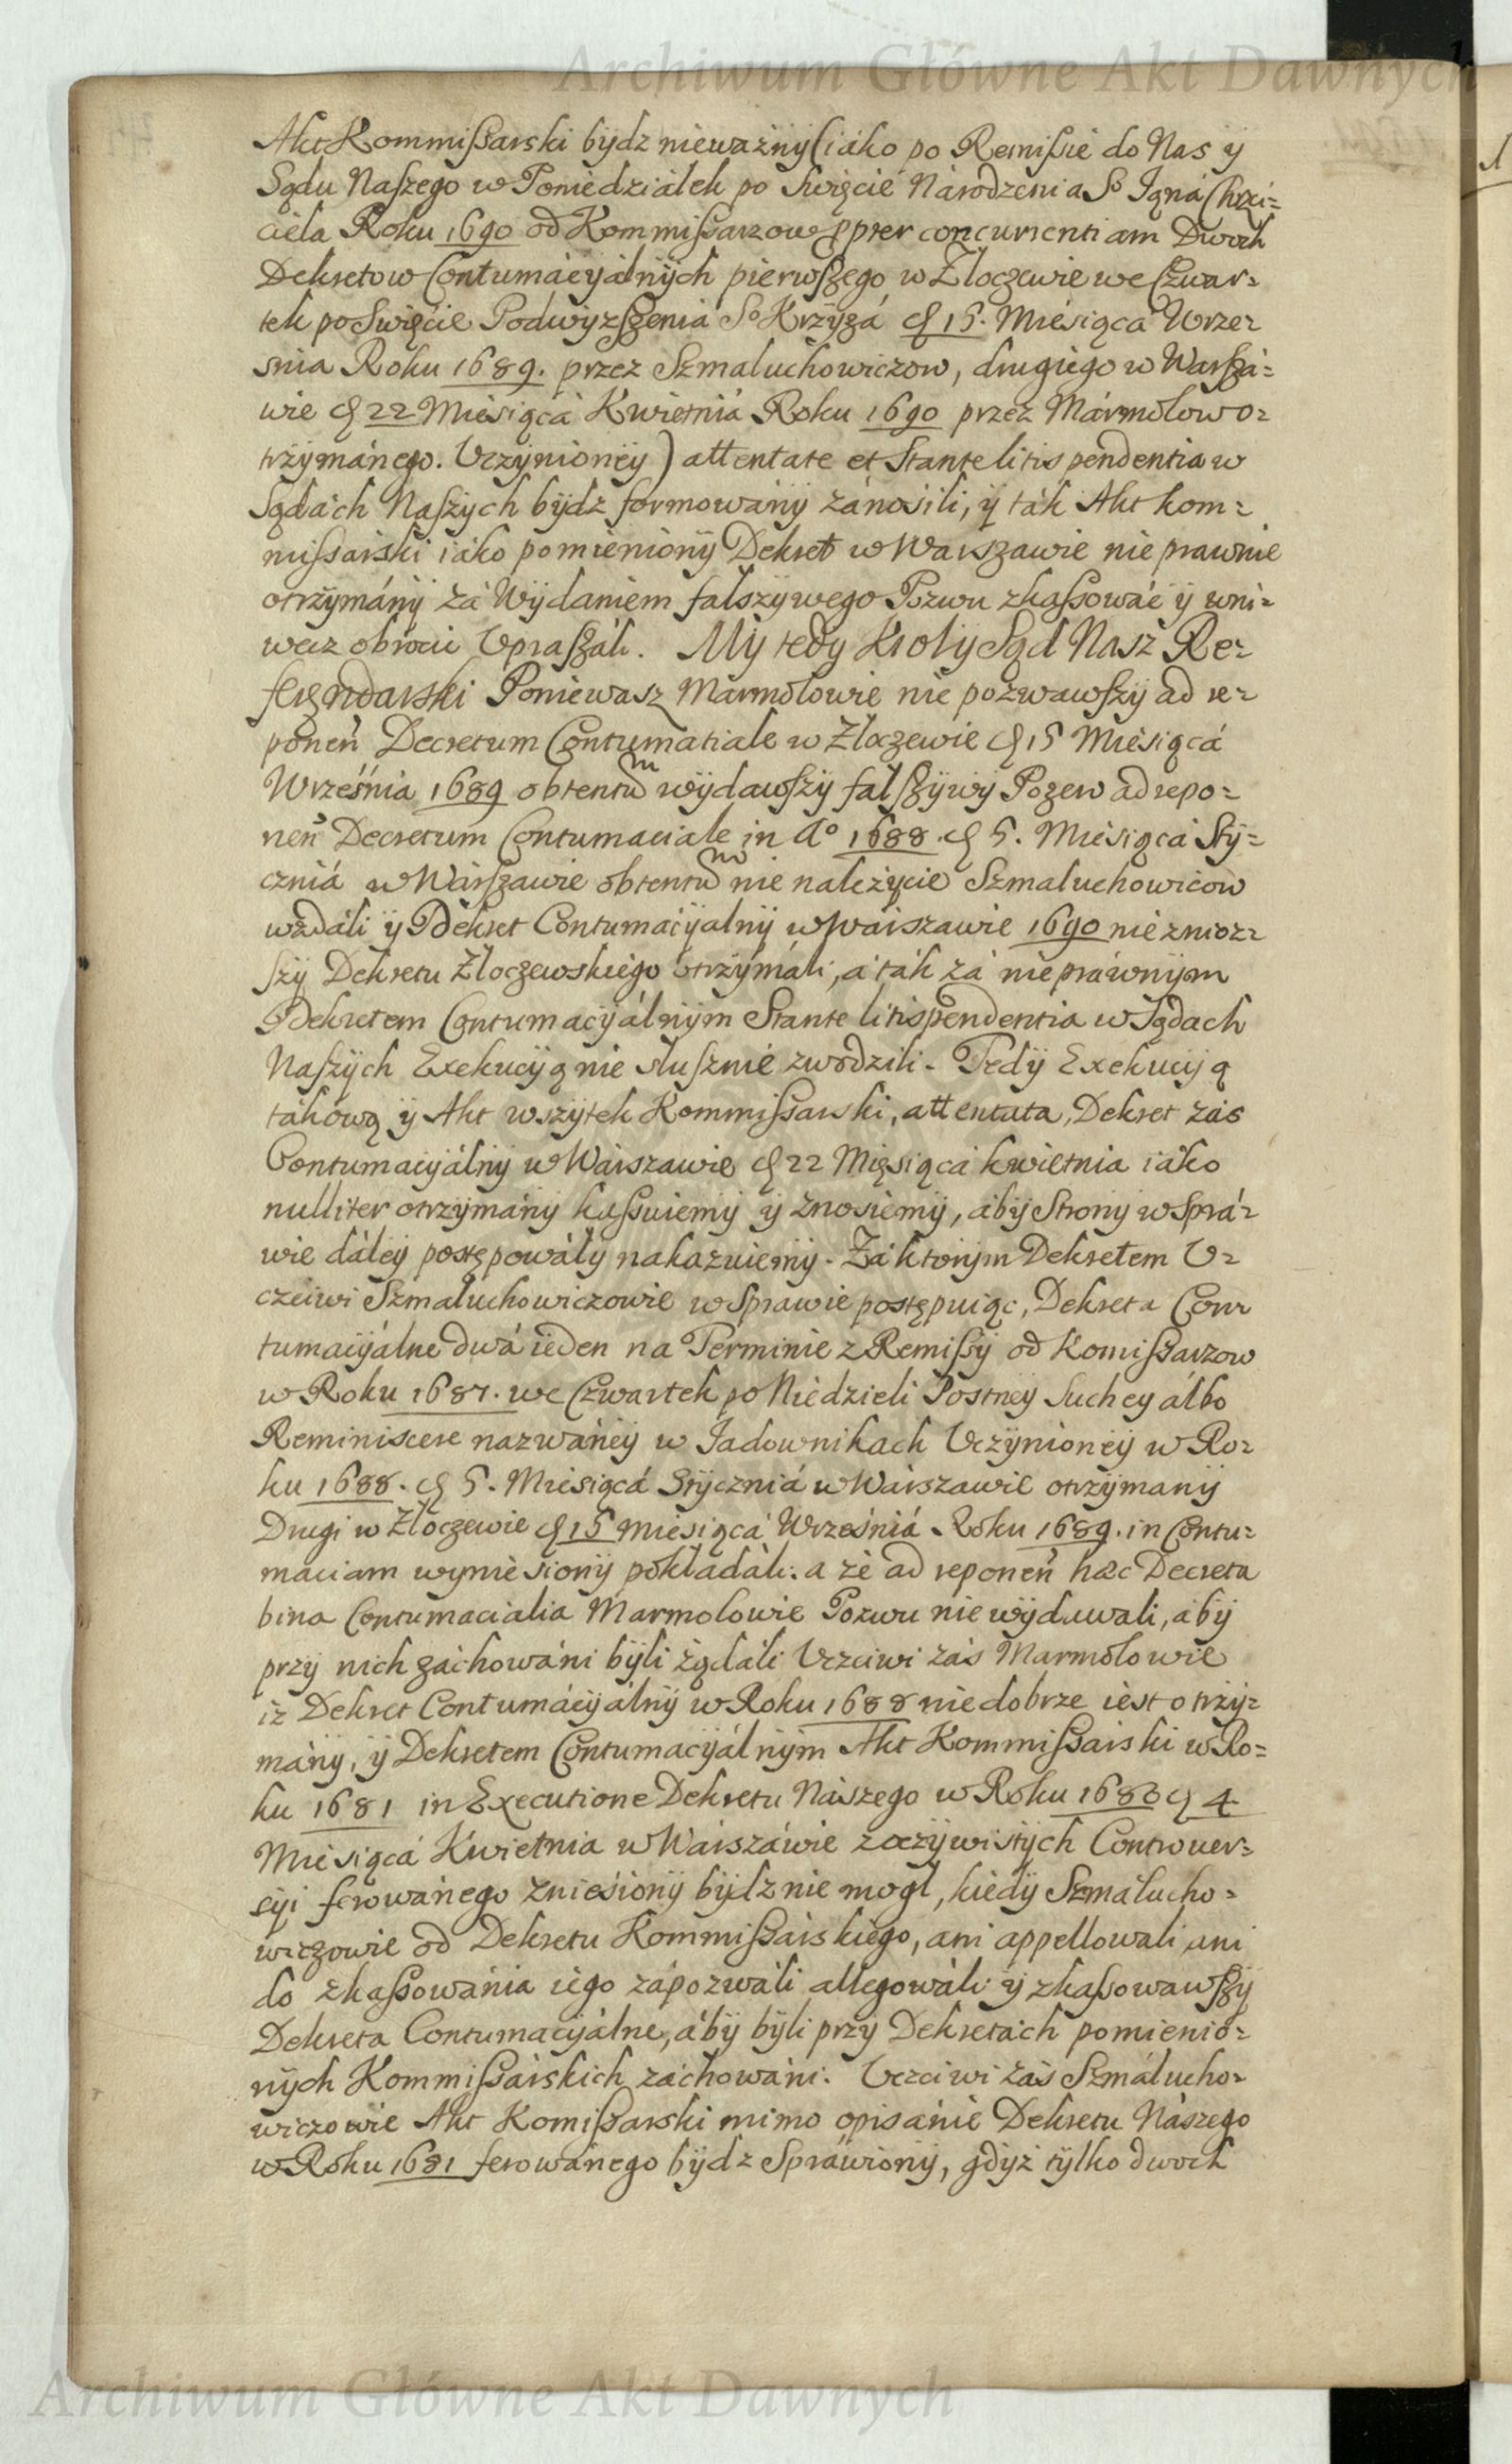 Archiwum Główne Akt Dawnych
Akt Kommißarski bydz nieważny (iáko po Remißie do Nas y
Sądu Naszego w Poniedziałek po Swięcie Národzenia So Jgná Chrzci=
ciela Roku 1690 od Kommißarzow ppter concurrentiam Dwoch
Dekretow Contumácyálnych pierwszego w Złoczewie we Czwar=
tek po Swięcie Podwyzszenia So Krzyzá d 15. Miesiącá Wrze=
snia Roku 1689. przez Szmaluchowiczow, drugiego w Warszá=
wie d 22 Miesiącá Kwietniá Roku 1690 przez Mármolow o=
trzymánego. Uczynioney) attentate et stante litis pendentia w
Sądách Naszych bydz formowány zánosili, y ták Akt kom=
mißarski iáko pomieniony Dekret w Warszawie nie prawnie
otrzymány zá Wydaniem falszywego Pozwu zkaßowáć y wni=
wecz obrocic Upraszáli. My tedy Krol y Sąd Nasz Re=
ferendarski Poniewasz Marmolowie nie pozwawszy ad re=
ponen Decretum Contumatiale w Złoczewie d 15 Miesiącá
Września 1689 obtentum wydawszy falszywy Pozew ad repo=
nen Decretum Contumaciale in Ao 1688. d 5. Miesiąca Sty=
czniá w Warszawie obtentum nie należycie Szmaluchowicow
wzdáli y Dekret Contumacyalny w Warszawie 1690 nie zniozs=
szy Dekretu Złoczewskiego otrzymáli, a ták zá nieprawnym
Dekretem Contumacyálnym Stante litispendentia w Sądach
Naszych Exekucyą nie słusznie zwodzili. Tedy Exekucyą
tákową y Akt wszytek Kommißarski, attentata, Dekret zás
Contumacyálny w Warszawie d 22 Mięsiącá kwietnia iáko
nulliter otrzymány kaßuiemy y znosiemy, aby Strony w Sprá=
wie dáley postępowály nakazuiemy. Zá ktorym Dekretem U=
czciwi Szmaluchowiczowie w Sprawie postępuiąc, Dekreta Con=
tumacyálne dwá ieden na Terminie z Remißy od Komißarzow
w Roku 1687. we Czwartek po Niedzieli Postney Suchey álbo
Reminiscere nazwáney w Jadownikach Uczynioney w Ro=
ku 1688. d 5. Miesiącá Styczniá w Warszawie otrzymany
Drugi w Złoczewie d 15 Miesiącá Wrześniá Roku 1689. in Contu=
maciam wyniesiony pokładáli: a że ad reponen hæc Decreta
bina Contumacialia Marmolowie Pozwu nie wydawali, áby
przy nich záchowáni byli żądáli Uczciwi zás Marmolowie
iż Dekret Contumácyálny w Roku 1688 nie dobrze iest otrzy=
mány, y Dekretem Contumacyálnym Akt Kommißarski w Ro=
ku 1681 in Executione Dekretu Nászego w Roku 1680 d 4
Miesiącá Kwietnia w Warszáwie z oczywistych Controver=
syi ferowánego zniesiony bydz nie mogł, kiedy Szmalucho=
wiczowie od Dekretu Kommißarskiego, ani appellowali ani
do zkaßowánia iego zápozwáli allegowáli y zkaßowawszy
Dekreta Contumacyálne, áby byli przy Dekretách pomienio=
nych Kommißarskich záchowáni. Uczciwi zás Szmálucho=
wiczowie Akt Komißarski mimo opisánie Dekretu Nászego
w Roku 1681 ferowánego bydz Spráwiony, gdyż tylko dwoch
Archiwum Główne Akt Dawnych